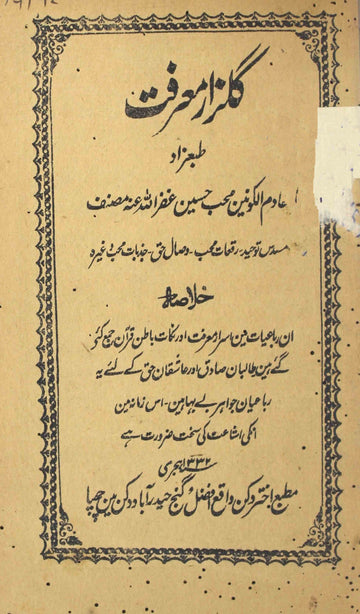 گلزار معرفت
طبعزاد
خادم الکونین محب حسین غفر اللہ عنہ مصنف
مسدس توحید۔ رقعات محب۔ وصال حق۔ جذبات محب وغیرہ
خلاصہ
ان رباعیات مین اسرار معرفت اور نکات باطن قرآن جمع کئے
گئے ہین طالبان صادق اور عاشقان حق کے لئے یہ
رباعیان جواہر بے بہا ہین۔ اس زمانہ مین
انکی اشاعت کی سخت ضرورت ہے
۱۳۳۲ ہجری
مطبع اختر دکن واقع افضل گنج حیدرآباد دکن مین چھپا